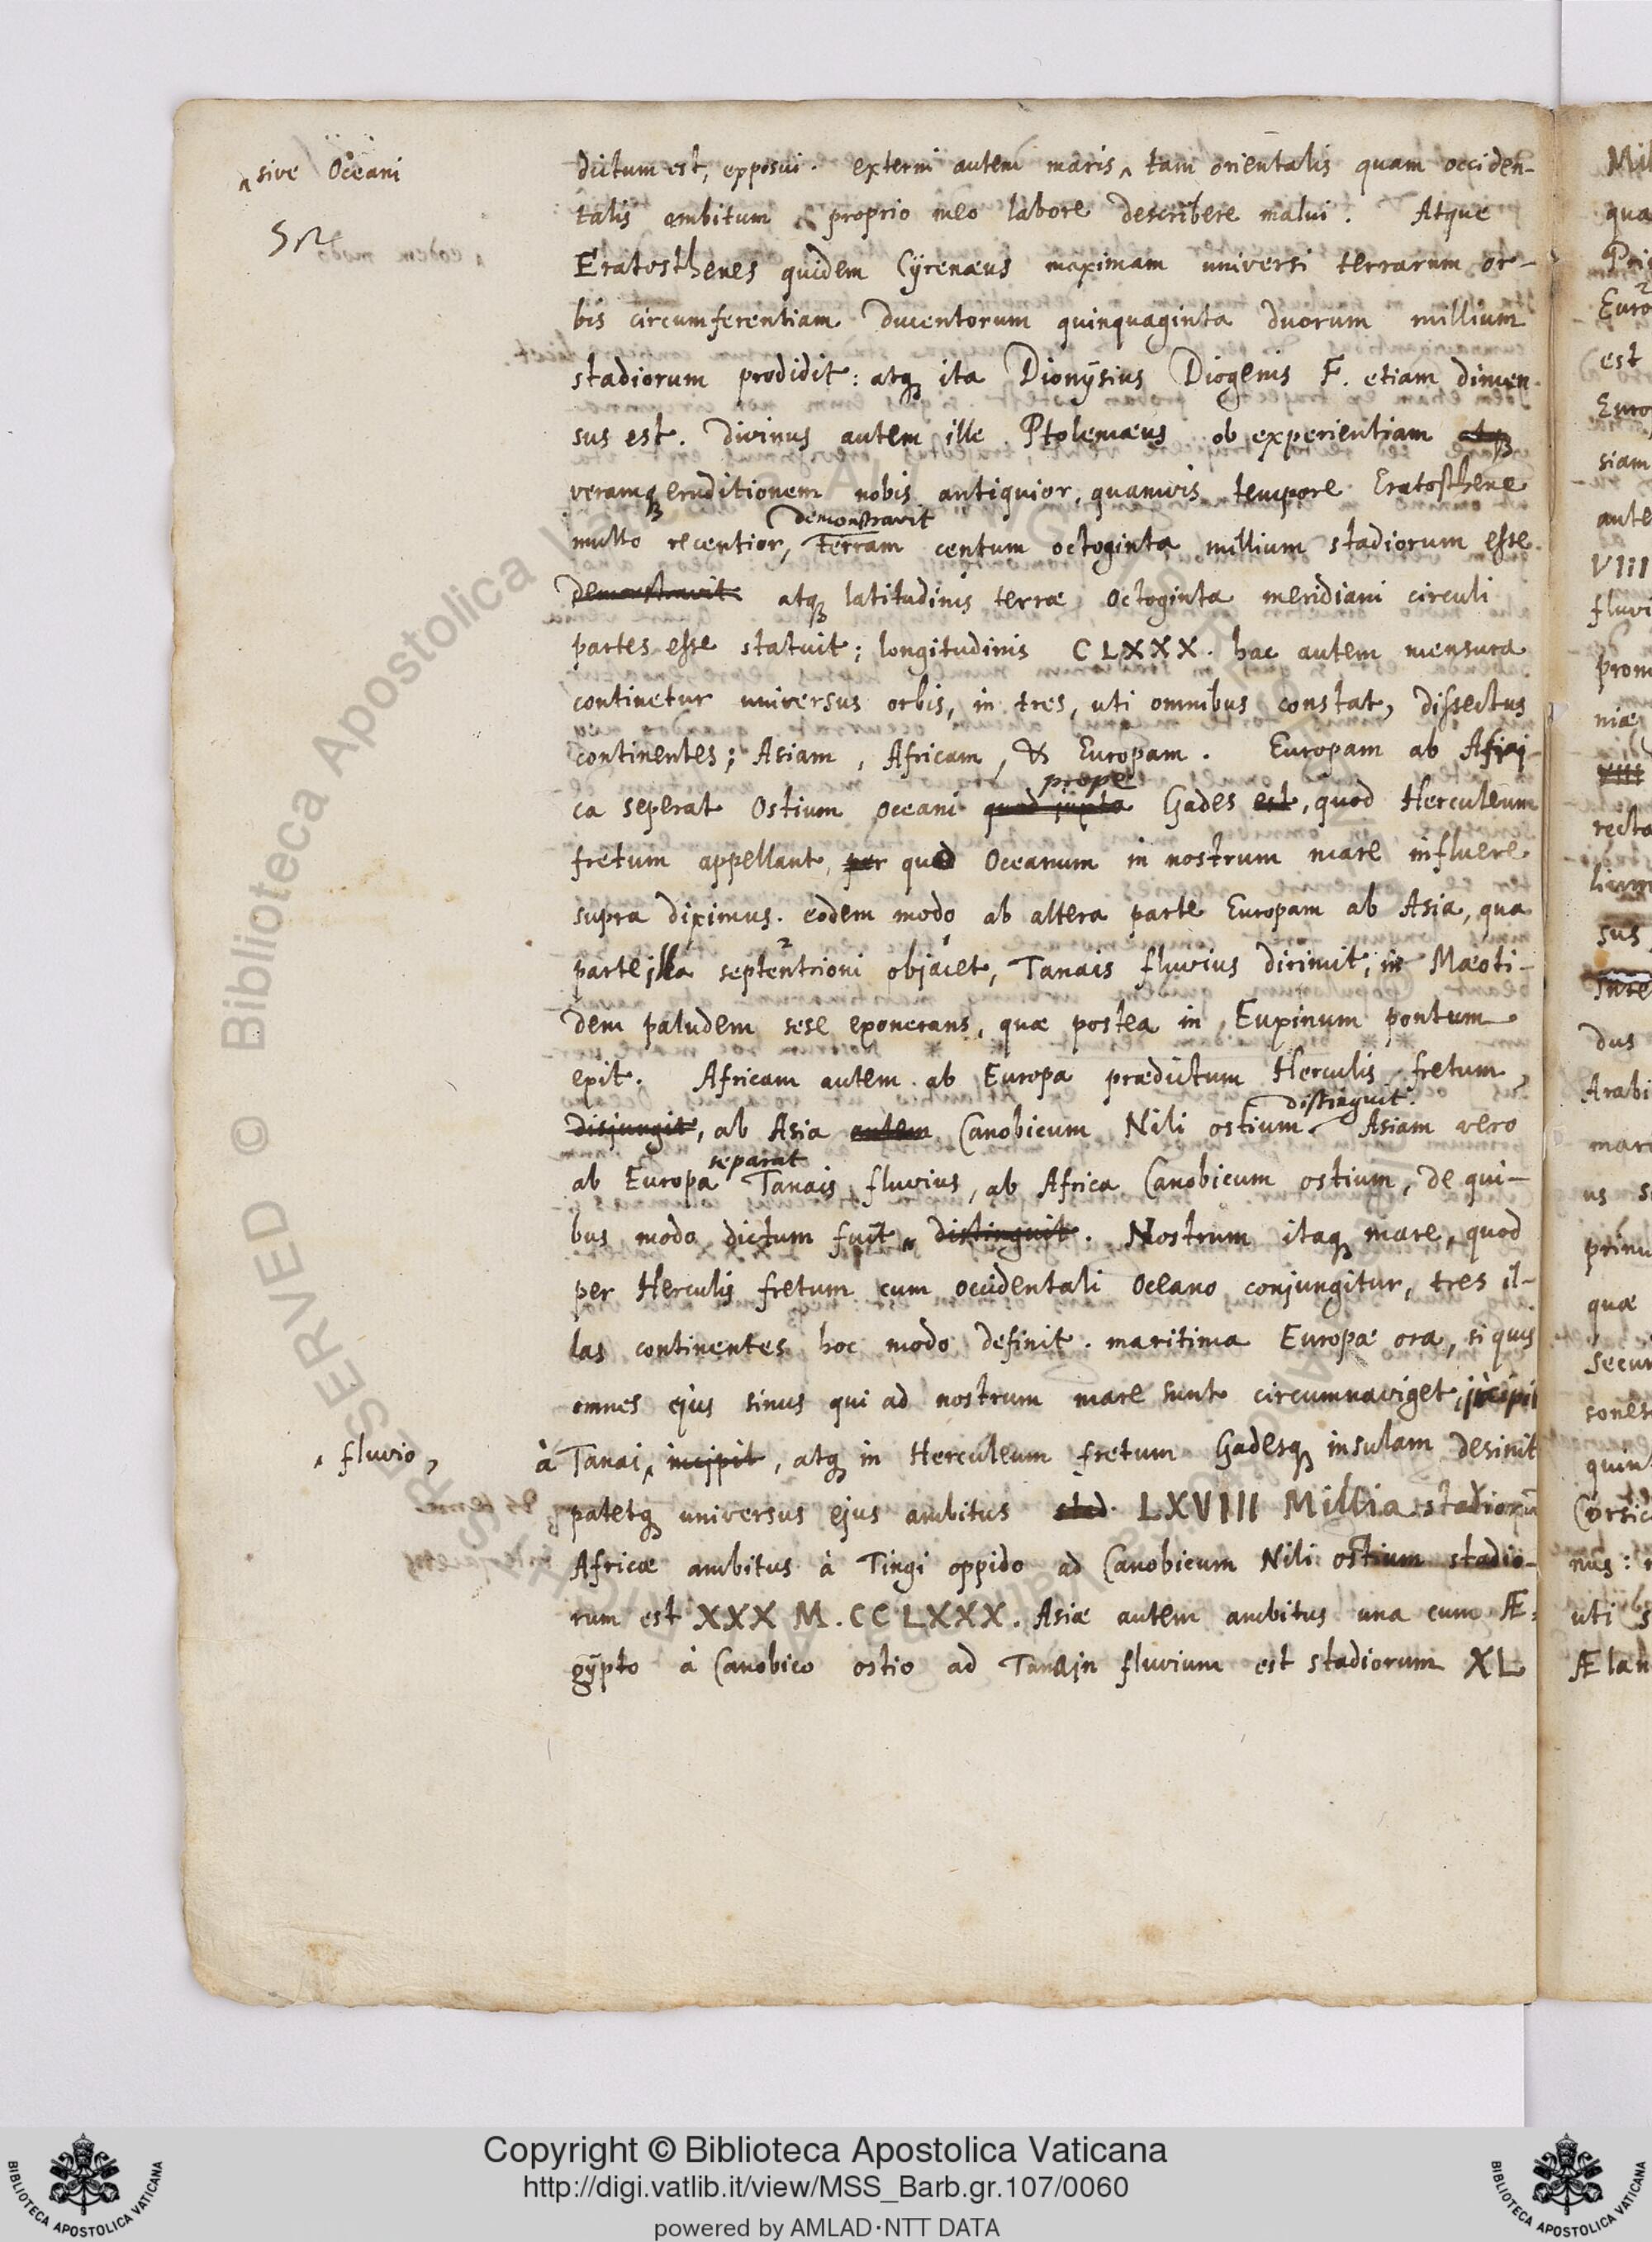 ‸ sive Oceani
dictum est, exposui. externi autem maris ‸ tam orientalis quam occiden-
talis ambitum proprio meo labore describere malui. Atque
Eratosthenes quidem Cÿrenæus maximam universi terrarum or-
bis circumferentiam ducentorum quinquaginta duorum millium
stadiorum prodidit: atq ita Dionÿsius Diogenis F. etiam dimen-
sus est. divinus autem ille Ptolemæus ob experientiam atq
veramq eruditionem nobis antiquior, quamvis tempore Eratosthene
demonstravit
multo recentior, terram centum octoginta millium stadiorum esse
demonstravit atq latitudinis terræ octoginta meridiani circuli
partes esse statuit; longitudinis CLXXX. hac autem mensura
continetur universus orbis, in tres, uti omnibus constat, dissectus
continentes; Asiam, Africam, & Europam. Europam ab Afri-
prope
ca seperat Ostium Oceani quod juxta Gades est, quod Herculeum
fretum appellant, per quod Oceanum in nostrum mare influere
supra diximus. eodem modo ab altera parte Europam ab Asia, qua
2 1
parte illa septentrioni objacet, Tanais fluvius dirimit, in Mæoti-
dem paludem sese exonerans, quæ postea in Euxinum pontum
exit. Africam autem ab Europa prædictum Herculis fretum,
distinguit.
disjungit, ab Asia autem Canobicum Nili ostium. Asiam vero
separat
ab Europa Tanais fluvius, ab Africa Canobicum ostium, de qui-
bus modo dictum fuit, distinguit. Nostrum itaq mare, quod
per Herculis fretum cum occidentali Oceano conjungitur, tres il-
las continentes hoc modo definit. maritima Europæ ora, si quis
omnes ejus sinus qui ad nostrum mare sunt circumnaviget, incipi
‸ fluvio,
à Tanai ‸ incipit, atq in Herculeum fretum Gadesq insulam desinit
patetq universus ejus ambitus stad. LXVIII Millia stadiorū
Africæ ambitus à Tingi oppido ad Canobicum Nili ostium stadio-
rum est XXX M. CCLXXX. Asiæ autem ambitus una cum Æ-
gÿpto à Canobico ostio ad Tanain fluvium est stadiorum XL
Mil
qua
Euro
est
Euro
siam
aute
VIII
fluvi
prom
niæ
VIII
recta
sus
dus
Arabi
mare
us s
primu
quæ
secun
sones
quin
Corsic
nus:
uti s
Ælan
© Biblioteca Apostolica Vaticana
Copyright © Biblioteca Apostolica Vaticana
http://digi.vatlib.it/view/MSS_Barb.gr.107/0060
powered by AMLAD·NTT DATA
BIBLIOTECA APOSTOLICA VATICANA
BIBLIOTECA APOSTOLICA VATICANA